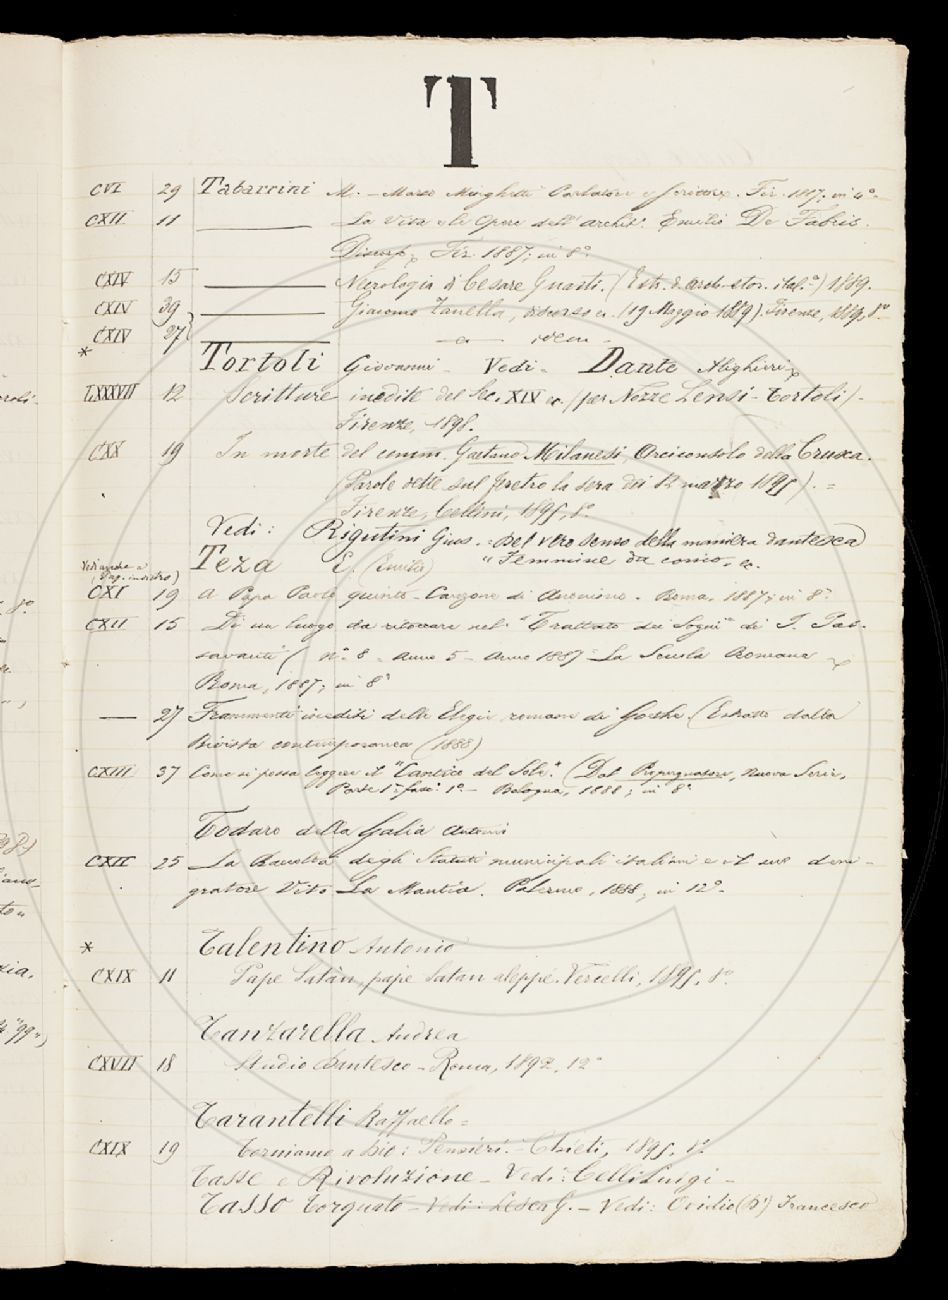 T
CVI 29 Tabarrini M. - Marco Minghetti Oratore e Scrittore. Fir. 1887; in 4º.
CXII 11 La Vita e le Opere dell' archit. Emilio De Fabris.
Discorso, Fir. 1887; in 8º
CXIV 15 Necrologia di Cesare Guasti. (Estr. d. arch. stor. ital.º) 1889.
CXIV 39 Giacomo Zanella, discorso (19 Maggio 1889). Firenze, 1889, 8º
CXIV 27 idem -
* Tortoli Giovanni - Vedi - Dante Alighieri
LXXXVII 12 Scritture inedite del Sec. XIV ec. (per Nozze Lensi-Tortoli) -
Firenze, 1898.
CXX 19 In morte del comm. Gaetano Milanesi, Arciconsolo della Crusca.
(Parole dette sul feretro la sera dei 12 marzo 1895). =
Firenze, Cellini, 1895, 8º
Vedi: Rigutini Gius. - Del vero senso della maniera dantesca
"Femmine da conio. ec.
Vedi anche a
(Pag. indietro) Teza E. (Emilio)
CXI 19 A Papa Paolo quinto - Canzone di Anonimo. Roma, 1887; in 8º
CXII 15 Di un luogo da ritoccare nel "Trattato dei Sogni" di J. Pas-
savanti (nº 8 - anno 5 - Anno 1887 - La Scuola Romana
Roma, 1887; in 8º
— 27 Frammenti inediti delle Elegie romane di Goethe (Estratto dalla
Rivista contemporanea (1888)
CXIII 37 Come si possa leggere il "Cantico del Sole". (Dal Propugnatore, Nuova Serie,
Parte 1ª, fasc. 1º - Bologna, 1888; in 8º
Todaro della Galia Antonio
CXII 25 La Raccolta degli Statuti municipali italiani e il suo deni-
gratore Vito La Mantia. Palermo, 1888, in 12º.
* Talentino Antonio
CXIX 11 Pape Satàn, pape Satan aleppe. Vercelli, 1895, 8º
Tanzarella Andrea
CXVII 18 Studio Dantesco - Roma, 1892, 12º
Tarantelli Raffaello =
CXIX 19 Torniamo a Dio: Pensieri. - Chieti, 1895, 8º
Tasse e Rivoluzione - Vedi: Celli Luigi -
Tasso Torquato - Vedi: Lesca G. - Vedi: Ovidio (D') Francesco